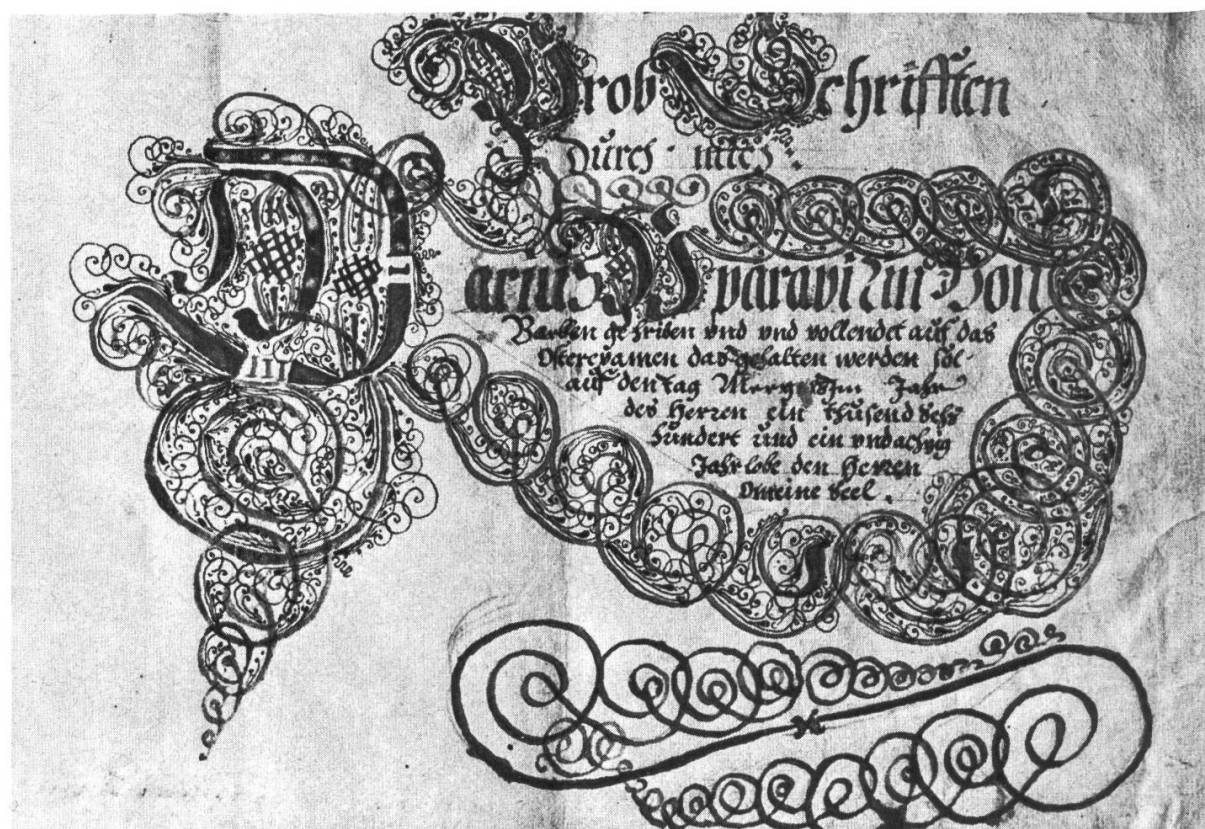 Prob Schrifften
Durch mich.
Von
vnd vnd vollendet auf das
Osterexamen das gehalten werden sol
auf den tag Jahr
des Herren ein thusend sechs
hundert und ein vndachzig
Jahr lobe den Herren
O meine seel.